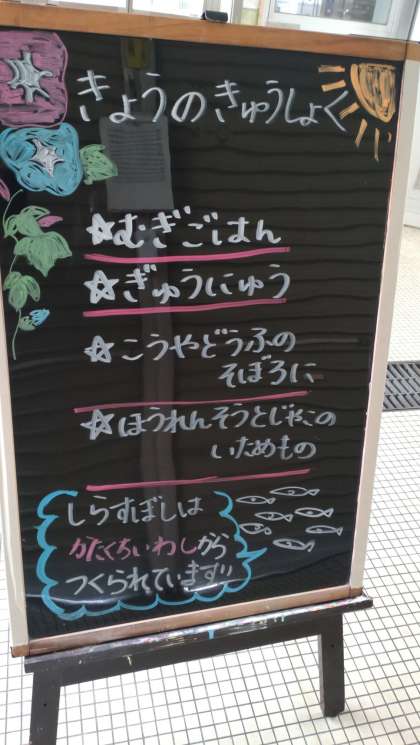 きょうのきゅうしょく
☆むぎごはん
☆ぎゅうにゅう
☆こうやどうふの
そぼろに
☆ほうれんそうとじゃこの
いためもの
しらすぼしは
かたくちいわしから
つくられています!!